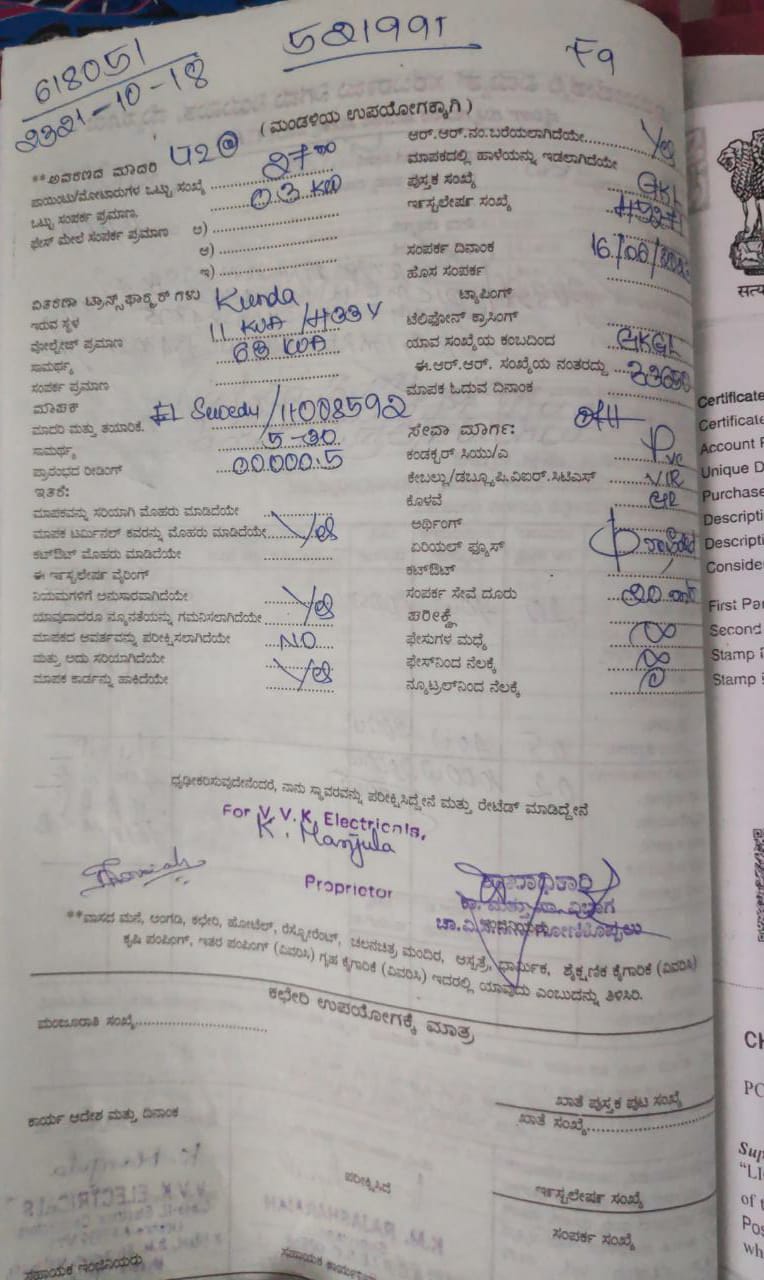 618051
521991
F9
2321-10-18
(ಮಂಡಳಿಯ ಉಪಯೋಗಕ್ಕಾಗಿ)
**ಆವರಣದ ಮಾದರಿ
ಪಾಯಿಂಟು/ಮೋಟಾರುಗಳ ಒಟ್ಟು ಸಂಖ್ಯೆ
ಒಟ್ಟು ಸಂಪರ್ಕ ಪ್ರಮಾಣ,
ಫೇಸ್ ಮೇಲೆ ಸಂಪರ್ಕ ಪ್ರಮಾಣ ಅ)
ಆ)
ಇ)
ವಿತರಣಾ ಟ್ರಾನ್ಸ್‌ಫಾರ್ಮರ್ ಗಳು Kunda
ಇರುವ ಸ್ಥಳ
ವೋಲ್ಟೇಜ್ ಪ್ರಮಾಣ 11 KVA / 433 V
ಸಾಮರ್ಥ್ಯ 63 KVA
ಸಂಪರ್ಕ ಪ್ರಮಾಣ
ಮಾಪಕ
ಮಾದರಿ ಮತ್ತು ತಯಾರಿಕೆ.
ಸಾಮರ್ಥ್ಯ 5-20
ಪ್ರಾರಂಭದ ರೀಡಿಂಗ್ 00000.5
ಇತರೆ:
ಮಾಪಕವನ್ನು ಸರಿಯಾಗಿ ಮೊಹರು ಮಾಡಿದೆಯೇ
ಮಾಪಕ ಟರ್ಮಿನಲ್ ಕವರನ್ನು ಮೊಹರು ಮಾಡಿದೆಯೇ Yes
ಕಟ್‌ಔಟ್ ಮೊಹರು ಮಾಡಿದೆಯೇ
ಈ ಇನ್ಸ್ಟಲೇಷನ್ ವೈರಿಂಗ್
ನಿಯಮಗಳಿಗೆ ಅನುಸಾರವಾಗಿದೆಯೇ
ಯಾವುದಾದರೂ ನ್ಯೂನತೆಯನ್ನು ಗಮನಿಸಲಾಗಿದೆಯೇ Yes
ಮಾಪಕದ ಆವರ್ತವನ್ನು ಪರೀಕ್ಷಿಸಲಾಗಿದೆಯೇ NO
ಮತ್ತು ಅದು ಸರಿಯಾಗಿದೆಯೇ
ಮಾಪಕ ಕಾರ್ಡನ್ನು ಹಾಕಿದೆಯೇ Yes
ಆರ್.ಆರ್.ನಂ.ಬರೆಯಲಾಗಿದೆಯೇ Yes
ಮಾಪಕದಲ್ಲಿ ಹಾಳೆಯನ್ನು ಇಡಲಾಗಿದೆಯೇ
ಪುಸ್ತಕ ಸಂಖ್ಯೆ GKL
ಇನ್ಸ್ಟಲೇಷನ್ ಸಂಖ್ಯೆ
ಸಂಪರ್ಕ ದಿನಾಂಕ
ಹೊಸ ಸಂಪರ್ಕ
ಟ್ಯಾಪಿಂಗ್
ಟೆಲಿಫೋನ್ ಕ್ರಾಸಿಂಗ್
ಯಾವ ಸಂಖ್ಯೆಯ ಕಂಬದಿಂದ GKGL
ಈ.ಆರ್.ಆರ್. ಸಂಖ್ಯೆಯ ನಂತರದ್ದು
ಮಾಪಕ ಓದುವ ದಿನಾಂಕ
ಸೇವಾ ಮಾರ್ಗ: OH
ಕಂಡಕ್ಟರ್ ಸಿಯು/ಎ PVC
ಕೇಬಲ್ಲು/ಡಬ್ಲ್ಯೂ.ಪಿ.ವಿಐಆರ್.ಸಿಟಿಎಸ್ VIR
ಕೊಳವೆ GI
ಅರ್ಥಿಂಗ್
ಏರಿಯಲ್ ಫ್ಯೂಸ್ Provided
ಕಟ್‌ಔಟ್
ಸಂಪರ್ಕ ಸೇವೆ ದೂರು
ಪರೀಕ್ಷೆ
ಫೇಸುಗಳ ಮಧ್ಯೆ ∞
ಫೇಸ್‌ನಿಂದ ನೆಲಕ್ಕೆ ∞
ನ್ಯೂಟ್ರಲ್‌ನಿಂದ ನೆಲಕ್ಕೆ 0
ದೃಢೀಕರಿಸುವುದೇನೆಂದರೆ, ನಾನು ಸ್ಥಾವರವನ್ನು ಪರೀಕ್ಷಿಸಿದ್ದೇನೆ ಮತ್ತು ರೇಟೆಡ್ ಮಾಡಿದ್ದೇನೆ
For V.V.K. Electricals,
K. Manjula
Proprietor
**ವಾಸದ ಮನೆ, ಅಂಗಡಿ, ಕಛೇರಿ, ಹೋಟೆಲ್, ರೆಸ್ಟೋರೆಂಟ್, ಚಲನಚಿತ್ರ ಮಂದಿರ, ಆಸ್ಪತ್ರೆ, ಧಾರ್ಮಿಕ, ಶೈಕ್ಷಣಿಕ ಕೈಗಾರಿಕೆ (ವಿವರಿಸಿ)
ಕೃಷಿ ಪಂಪಿಂಗ್, ಇತರ ಪಂಪಿಂಗ್ (ವಿವರಿಸಿ) ಗೃಹ ಕೈಗಾರಿಕೆ (ವಿವರಿಸಿ) ಇದರಲ್ಲಿ ಯಾವುದು ಎಂಬುದನ್ನು ತಿಳಿಸಿರಿ.
ಕಛೇರಿ ಉಪಯೋಗಕ್ಕೆ ಮಾತ್ರ
ಮಂಜೂರಾತಿ ಸಂಖ್ಯೆ
ಖಾತೆ ಪುಸ್ತಕ ಪುಟ ಸಂಖ್ಯೆ
ಕಾರ್ಯ ಆದೇಶ ಮತ್ತು ದಿನಾಂಕ
ಖಾತೆ ಸಂಖ್ಯೆ
ಪರೀಕ್ಷಿಸಿದೆ
ಇನ್ಸ್ಟಲೇಷನ್ ಸಂಖ್ಯೆ
ಸಂಪರ್ಕ ಸಂಖ್ಯೆ
ಸಹಾಯಕ ಇಂಜಿನಿಯರು
Certificate
Certificate
Account
Unique D
Purchase
Descripti
Descripti
Conside
First Pa
Second
Stamp
Stamp